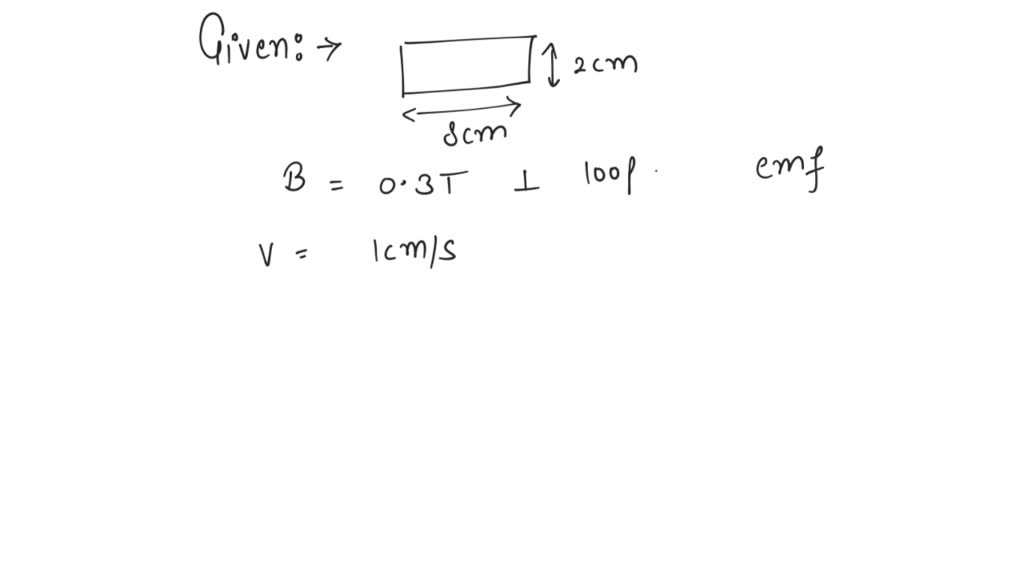 Given: →
2cm
8cm
B = 0.3T ⊥ loop. emf
V = 1cm/s